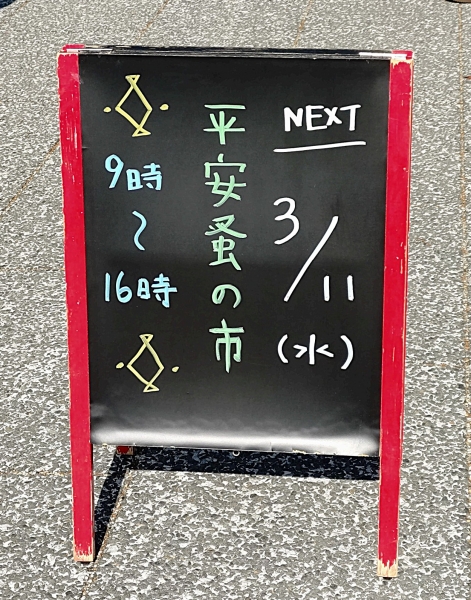 NEXT
3/11
(水)
平安蚤の市
9時
～
16時